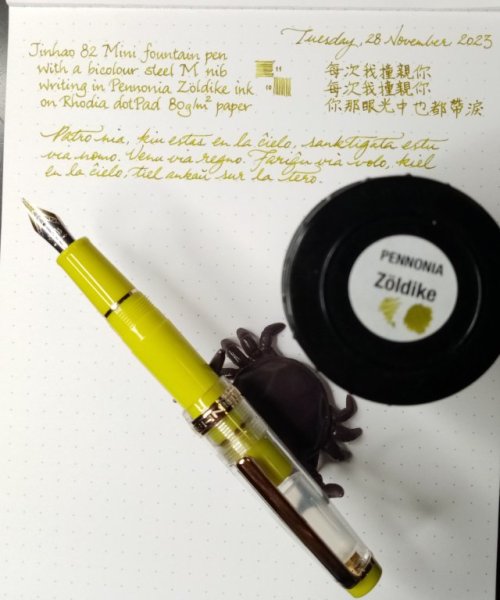 Tuesday, 28 November 2023
Jinhao 82 Mini fountain pen
with a bicolour steel M nib
writing in Pennonia Zöldike ink
on Rhodia dotPad 80g/m² paper
每次我撞親你
每次我撞親你
你那眼光中也都帶淚
Patro nia, kiu estas en la ĉielo, sanktigata estu
via nomo. Venu via regno. Fariĝu via volo, kiel
en la ĉielo, tiel ankaŭ sur la tero.
PENNONIA
Zöldike